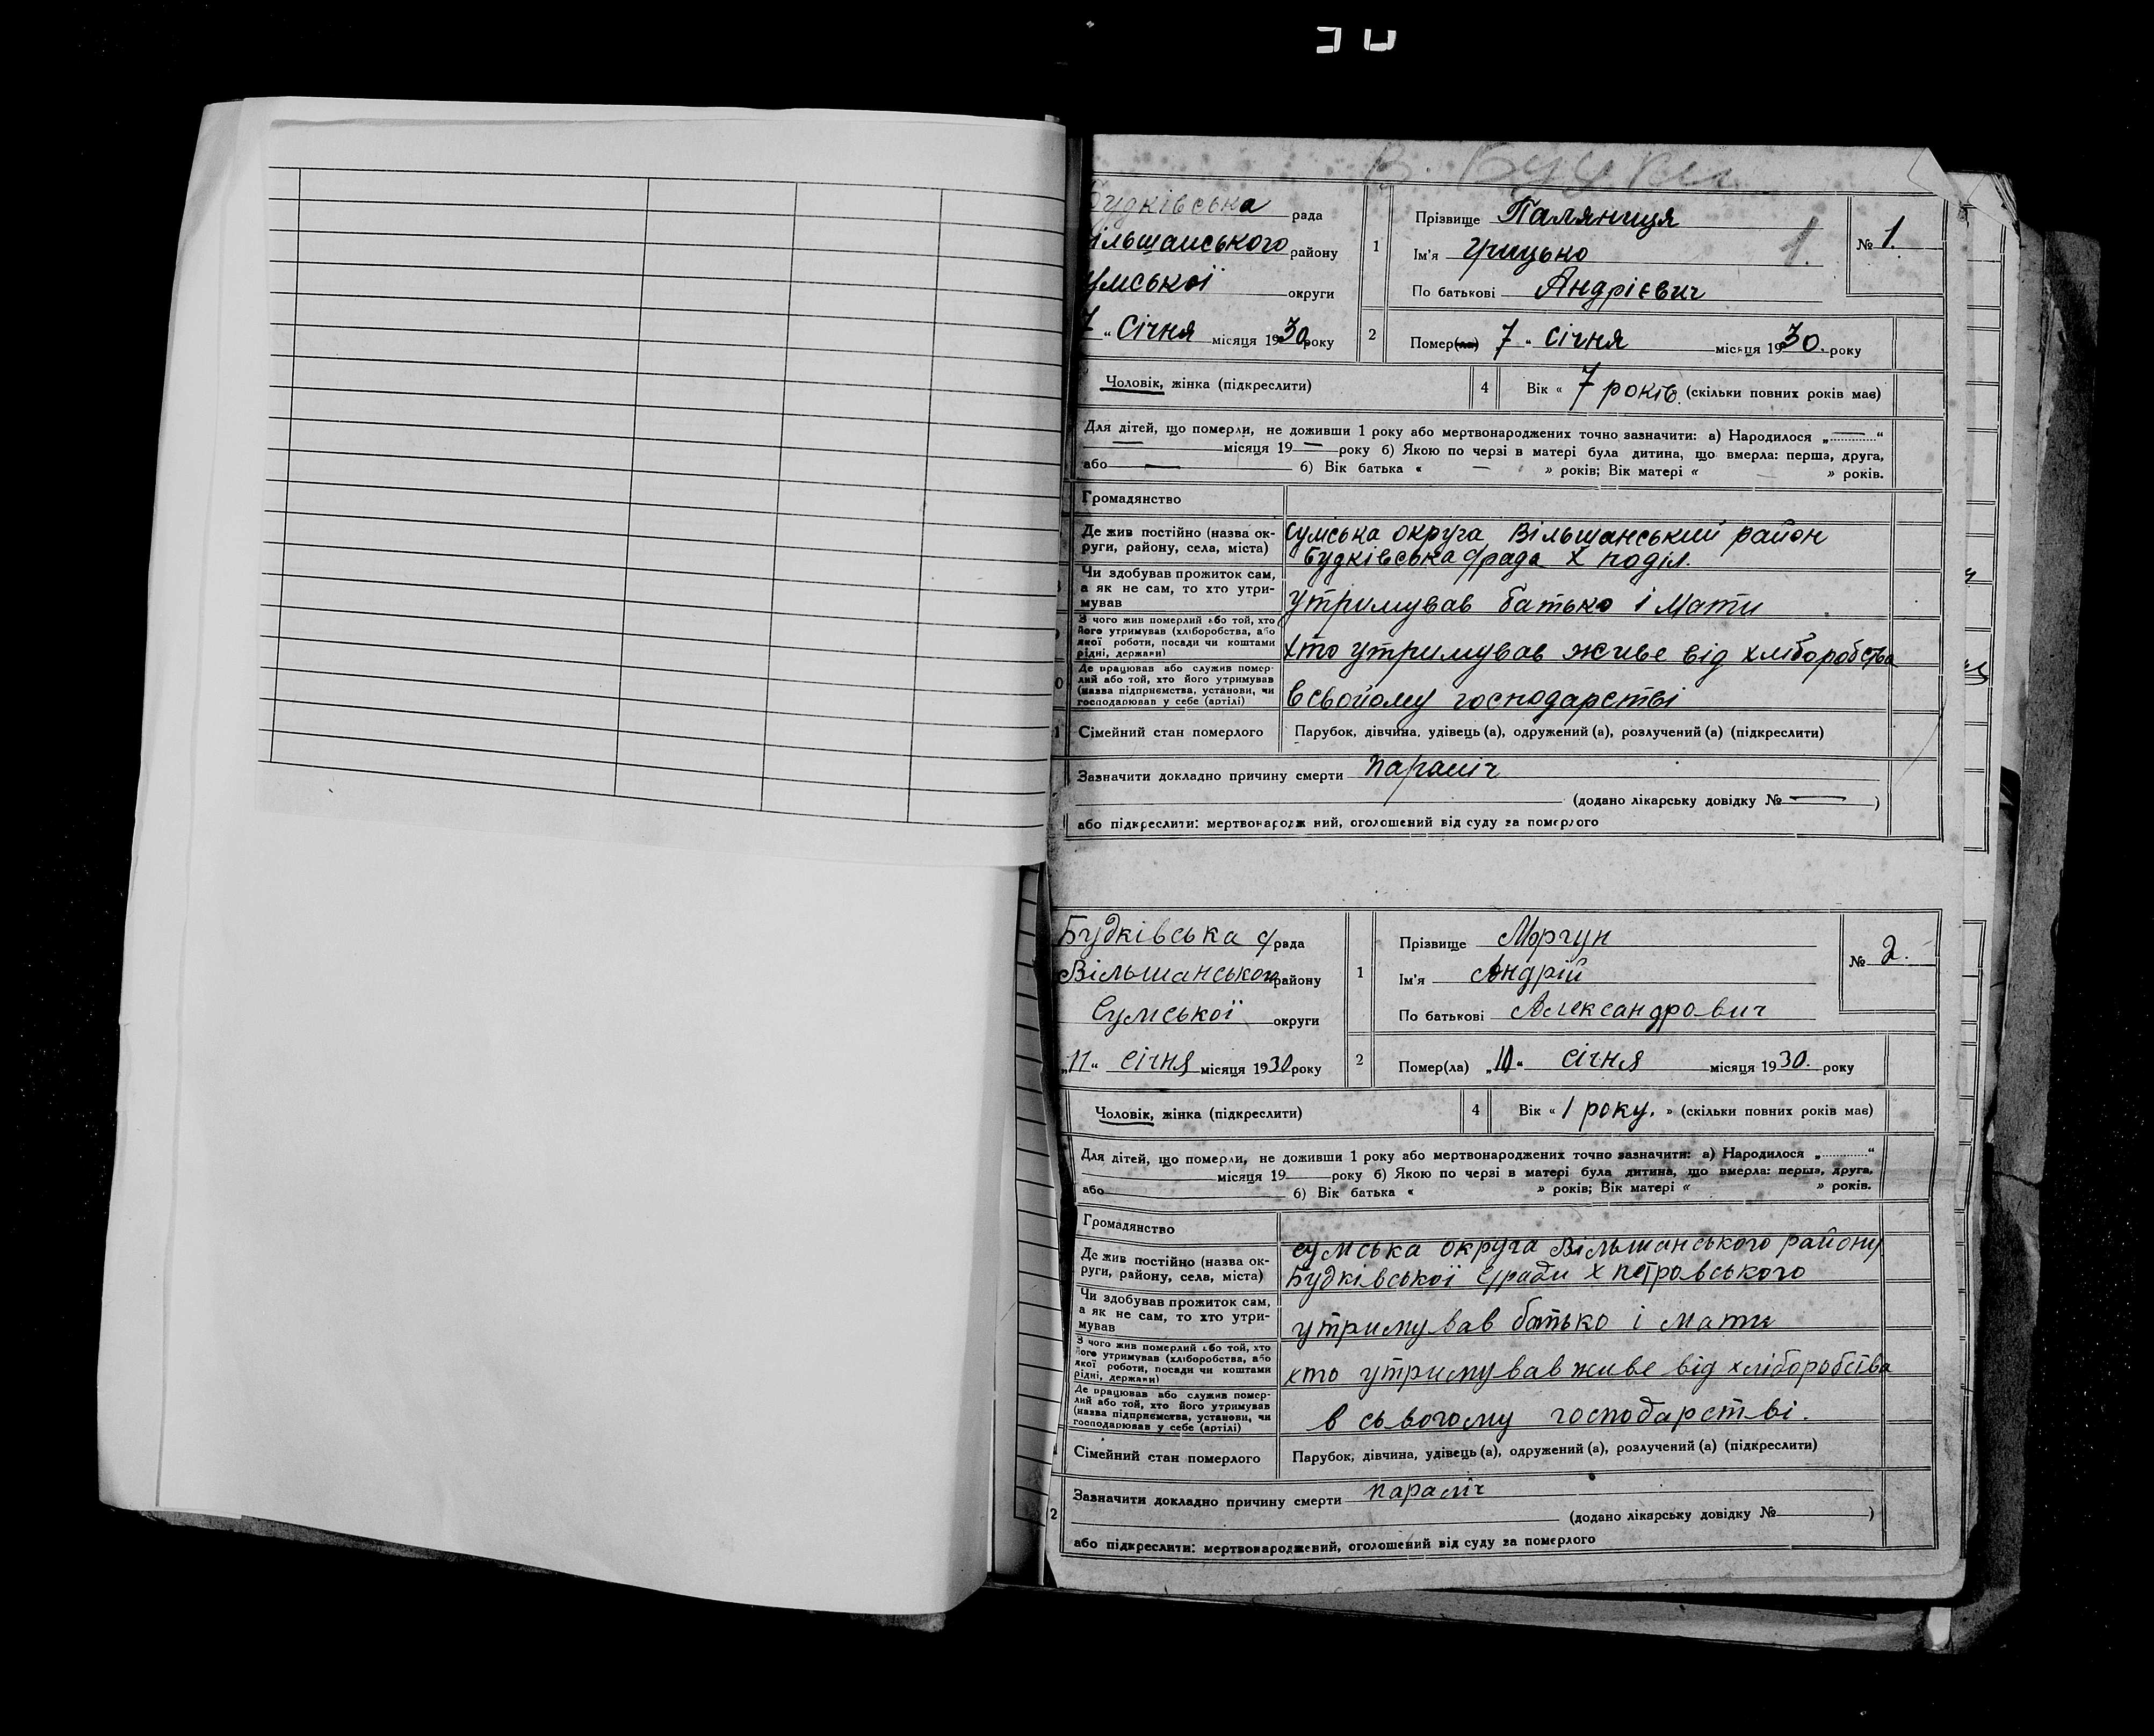 В. Будки
Будківська рада
ільшанського району
умської округи
7 " Січня місяця 1930 року
1
Прізвище Паляниця
Ім'я Грицько
По батькові Андрієвич
1.
№ 1.
2
Помер(ла) 7 " Січня місяця 1930. року
Чоловік, жінка (підкреслити)
4
Вік « 7 років. (скільки повних років має)
Для дітей, що померли, не доживши 1 року або мертвонароджених точно зазначити: а) Народилося „ — “
— місяця 19 — року б) Якою по черзі в матері була дитина, що вмерла: перша, друга,
або — б) Вік батька « — » років; Вік матері « — » років.
Громадянство
Де жив постійно (назва ок-
руги, району, села, міста)
Сумська округа, Вільшанський район
Будківська с/рада х поділ.
Чи здобував прожиток сам,
а як не сам, то хто утри-
мував
утримував батько і мати
З чого жив померлий або той, хто
його утримував (хліборобства, або
якої роботи, посади чи коштами
рідні, держави)
хто утримував живе від хліборобства
Де працював або служив помер-
лий або той, хто його утримував
(назва підприємства, установи, чи
господарював у себе (артілі)
0
в сьвойому господарстві
1
Сімейний стан померлого
Парубок, дівчина, удівець (а), одружений (а), розлучений (а) (підкреслити)
Зазначити докладно причину смерти параліч
(додано лікарську довідку № — )
або підкреслити: мертвонароджений, оголошений від суду за померлого
Будківська с/рада
Вільшанського району
Сумської округи
„11“ січня місяця 1930 року
1
Прізвище Моргун
Ім'я Андрій
По батькові Александрович
№ 2.
2
Помер(ла) „10“ січня місяця 1930. року
Чоловік, жінка (підкреслити)
4
Вік « 1 року. » (скільки повних років має)
Для дітей, що померли, не доживши 1 року або мертвонароджених точно зазначити: а) Народилося „ “
місяця 19 року б) Якою по черзі в матері була дитина, що вмерла: перша, друга,
або б) Вік батька « » років; Вік матері « » років.
Громадянство
Де жив постійно (назва ок-
руги, району, села, міста)
сумська округа Вільшанського району
Будківської с/ради х петровського
Чи здобував прожиток сам,
а як не сам, то хто утри-
мував
утримував батько і мати
З чого жив померлий або той, хто
його утримував (хліборобства, або
якої роботи, посади чи коштами
рідні, держави)
хто утримував живе від хліборобства
Де працював або служив помер-
лий або той, хто його утримував
(назва підприємства, установи, чи
господарював у себе (артілі)
в сьвогому господарстві.
Сімейний стан померлого
Парубок, дівчина, удівець (а), одружений (а), розлучений (а) (підкреслити)
2
Зазначити докладно причину смерти параліч
(додано лікарську довідку № )
або підкреслити: мертвонароджений, оголошений від суду за померлого